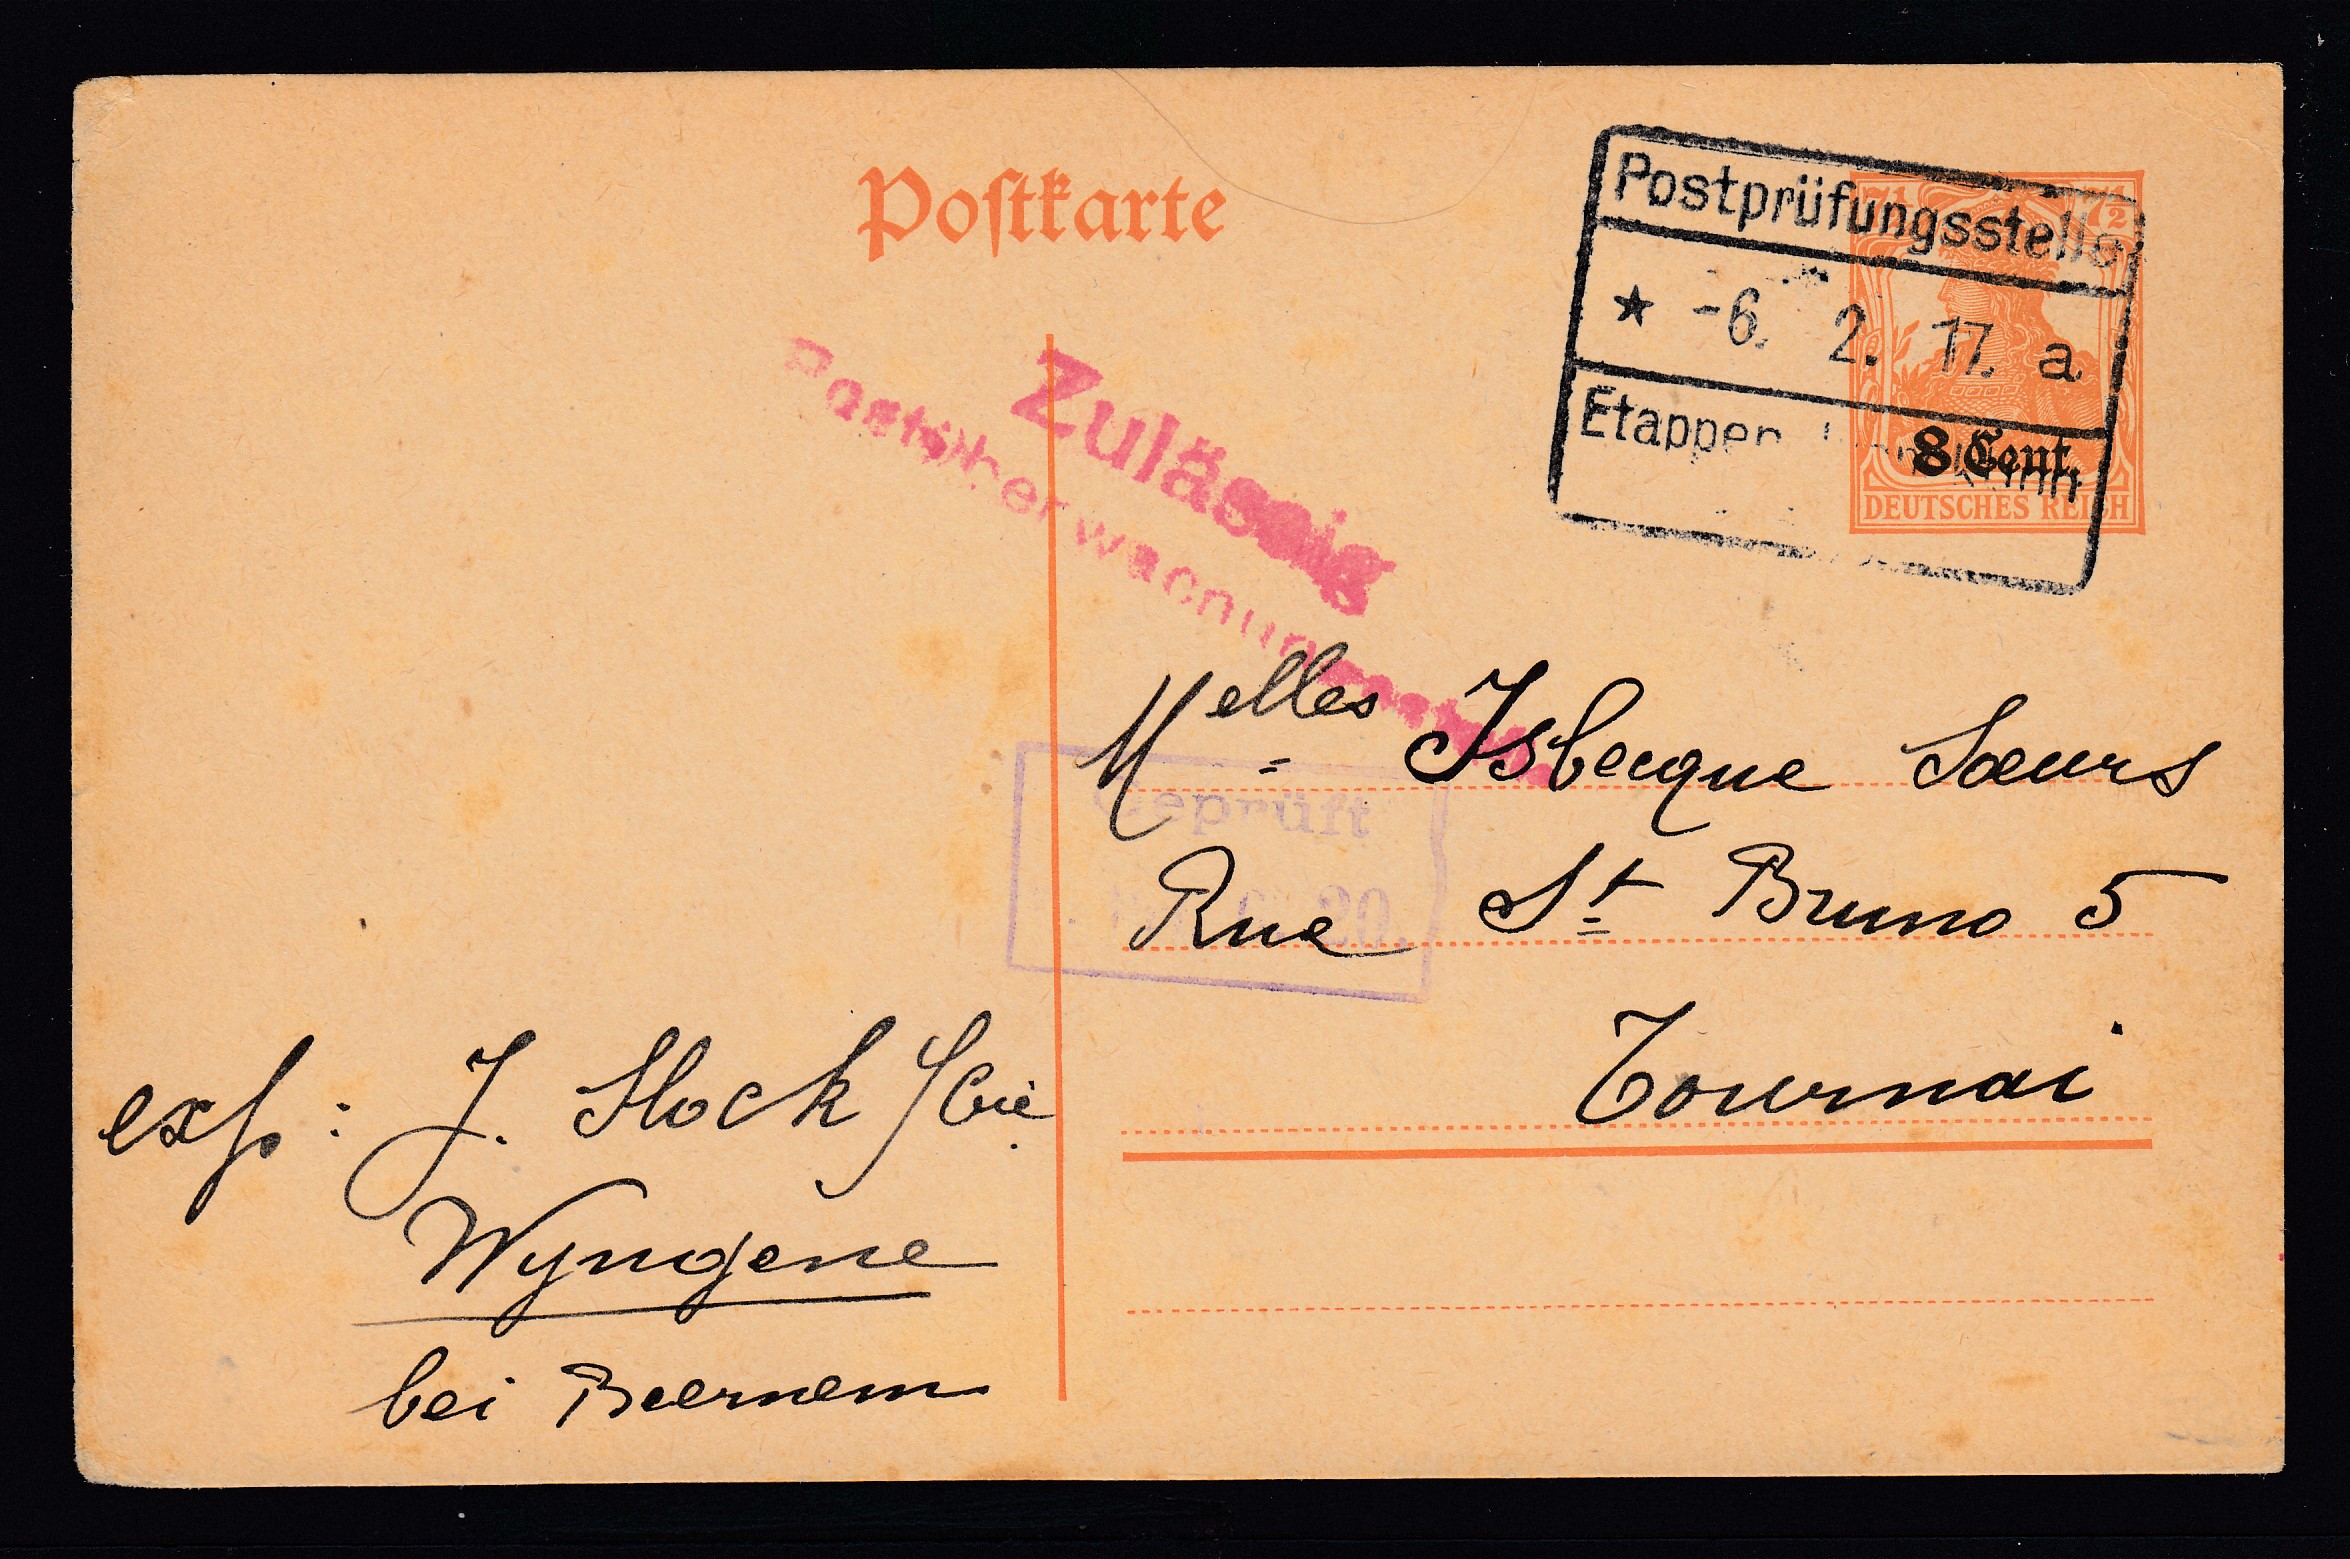 Postkarte
Postprüfungsstelle
* -6. 2. 17. a
Etappen
7½
8 Cent.
DEUTSCHES REICH
Zulässig
Postüberwachungsstelle
Melles Isbecque Sœurs
Geprüft
Rue St Bruno 5
20.
Tournai
exp: J. Hock
Wyngene
bei Beernem